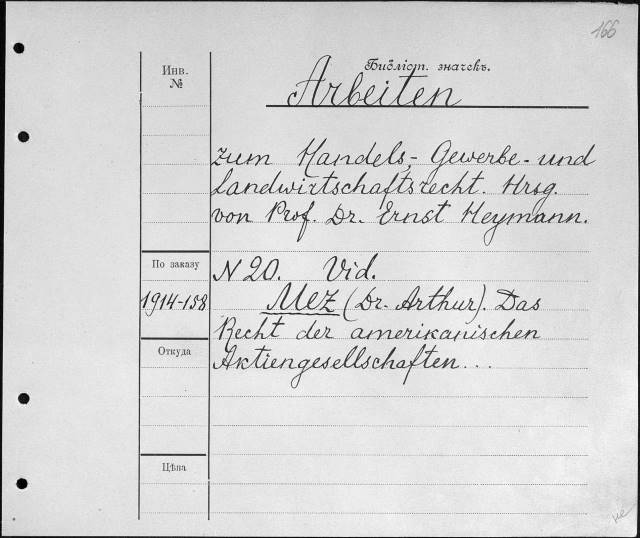 166
Инв.
№
Библіот. значекъ.
Arbeiten
zum Handels,- Gewerbe- und
Landwirtschaftsrecht. Hrsg.
von Prof. Dr. Ernst Heymann.
По заказу
1914-158
N 20. Vid.
Mez (Dr. Arthur). Das
Recht der amerikanischen
Aktiengesellschaften...
Откуда
Цѣна